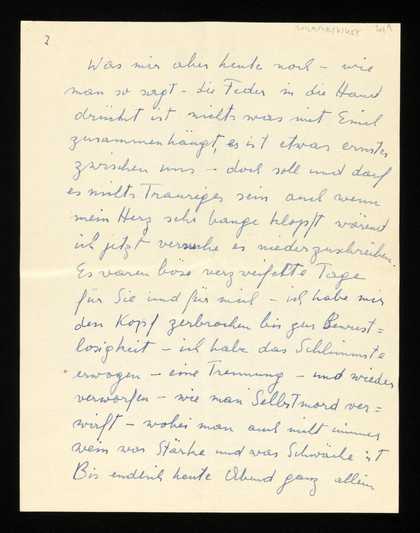 2
Was mir aber heute noch – wie
man so sagt – die Feder in die Hand
drückt ist nichts was mit Emil
zusammenhängt, es ist etwas ernstes
zwischen uns – doch soll und darf
es nichts Trauriges sein auch wenn
mein Herz sehr bange klopft wärend
ich jetzt versuche es niederzuschreiben.
Es waren böse verzweifelte Tage
für Sie und für mich – ich habe mir
den Kopf zerbrochen bis zur Bewust=
losigkeit – ich habe das Schlimmste
erwogen – eine Trennung – und wieder
verworfen – wie man Selbstmord ver=
wirft – wobei man auch nicht immer
weis was Stärke und was Schwäche ist
Bis endlich heute Abend ganz allein